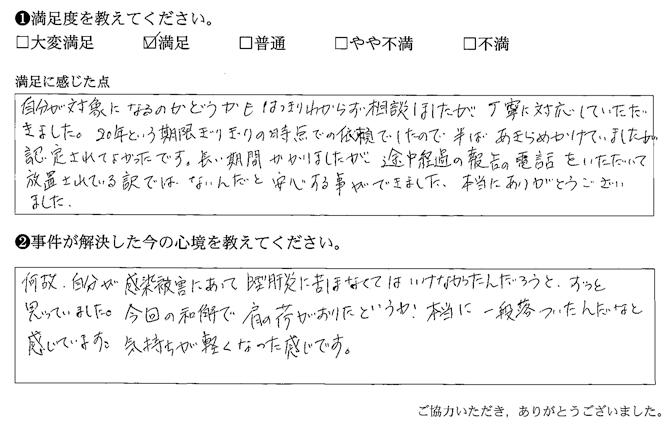 ❶満足度を教えてください。
□大変満足 ☑満足 □普通 □やや不満 □不満
満足に感じた点
自分が対象になるのかどうかもはっきりわからず相談しましたが 丁寧に対応していただ
きました。20年という期限ぎりぎりの時点での依頼でしたので 半ばあきらめかけていましたが
認定されてよかったです。長い期間かかりましたが 途中経過の報告の電話をいただいて
放置されている訳ではないんだと 安心する事ができました。本当にありがとうござい
ました。
❷事件が解決した今の心境を教えてください。
何故、自分が感染被害にあって 肝炎に苦しまなくてはいけなかったんだろうと、ずっと
思っていました。今回の和解で 肩の荷がおりたというか、本当に 一段落ついたんだなと
感じています。気持ちが軽くなった感じです。
ご協力いただき，ありがとうございました。